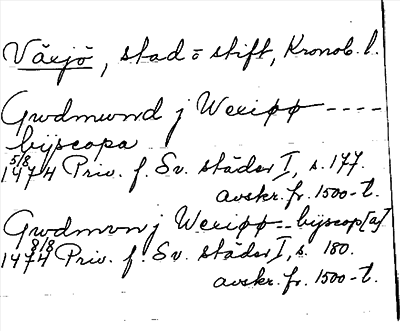 Växjö, stad o stift, Kronob. l.
Gwdmwnd j Wexiøø ----
bijscopa
5/8
1474 Priv. f. Sv. städer I, s. 177.
avskr. fr. 1500-t.
Gwdmvn j Wexiøø -- bijscop[a]
8/8
1474 Priv. f. Sv. städer I, s. 180.
avskr. fr. 1500-t.